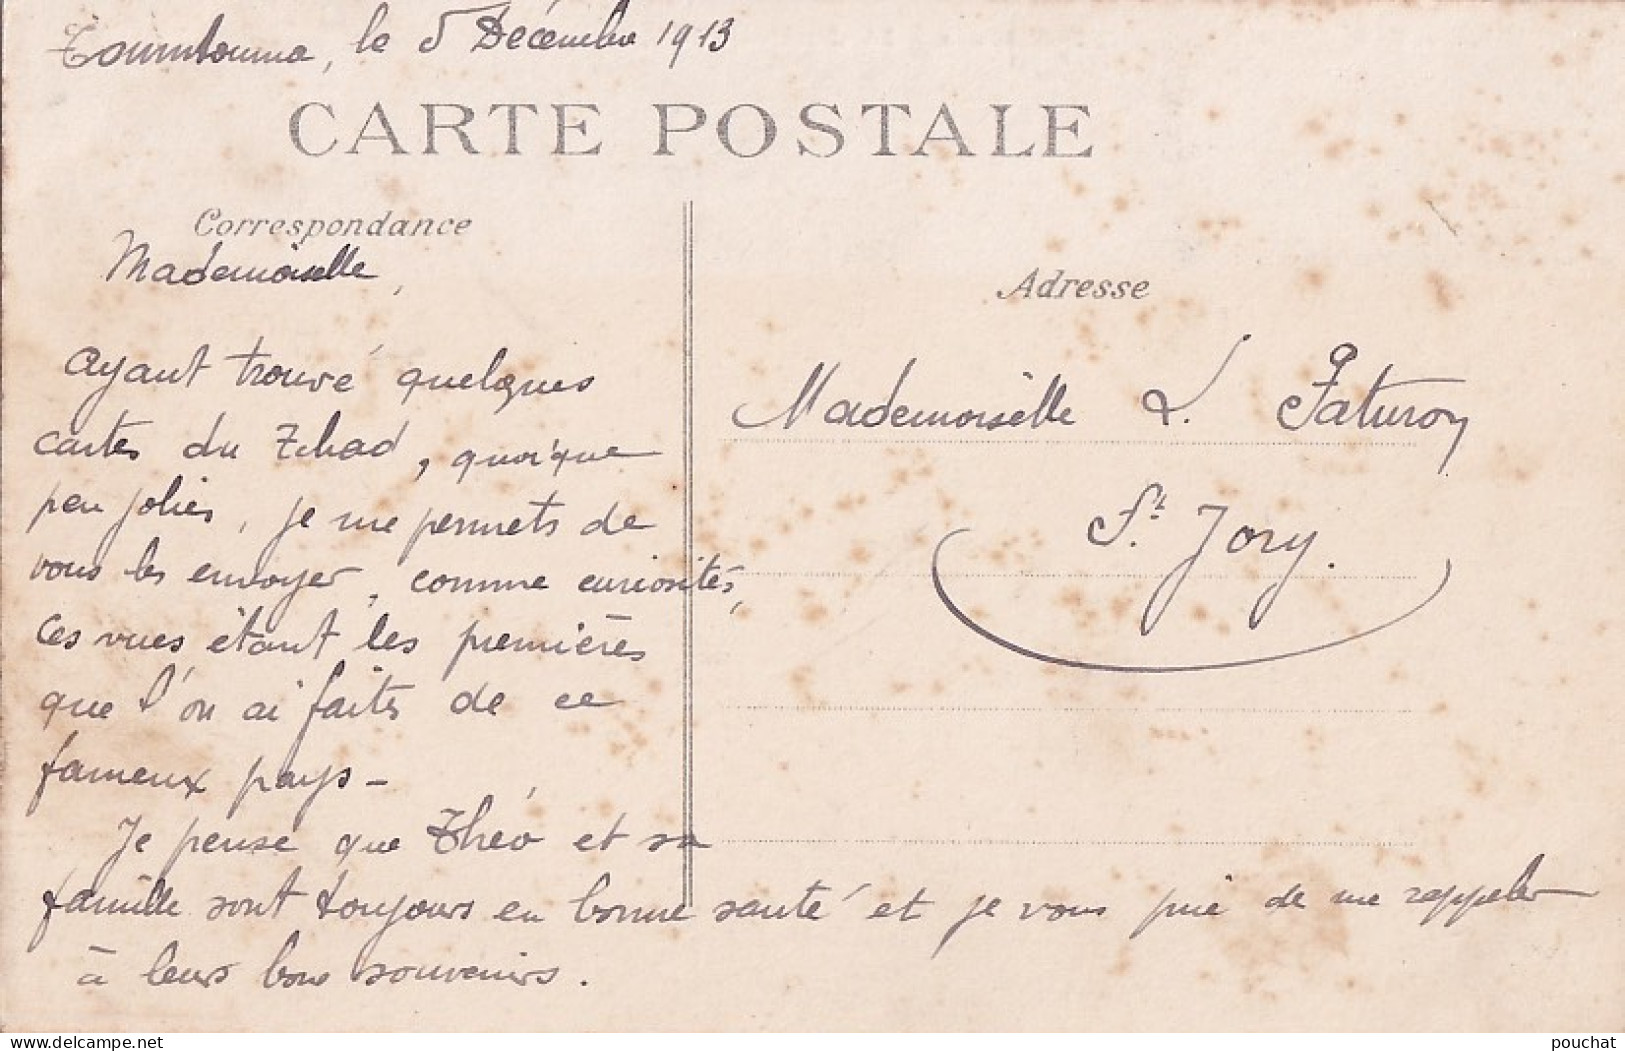 Tourntouma, le 5 Décembre 1913
CARTE POSTALE
Correspondance
Mademoiselle,
Ayant trouvé quelques
cartes du Tchad, quoique
peu jolies, je me permets de
vous les envoyer, comme curiosités,
ces vues étant les premières
que l'on ai faites de ce
fameux pays -
Je pense que Théo et sa
famille sont toujours en bonne santé et je vous prie de me rappeler
à leurs bons souvenirs.
Adresse
Mademoiselle L. Faturoy
St. Jory.
pouchat
delcampe.net